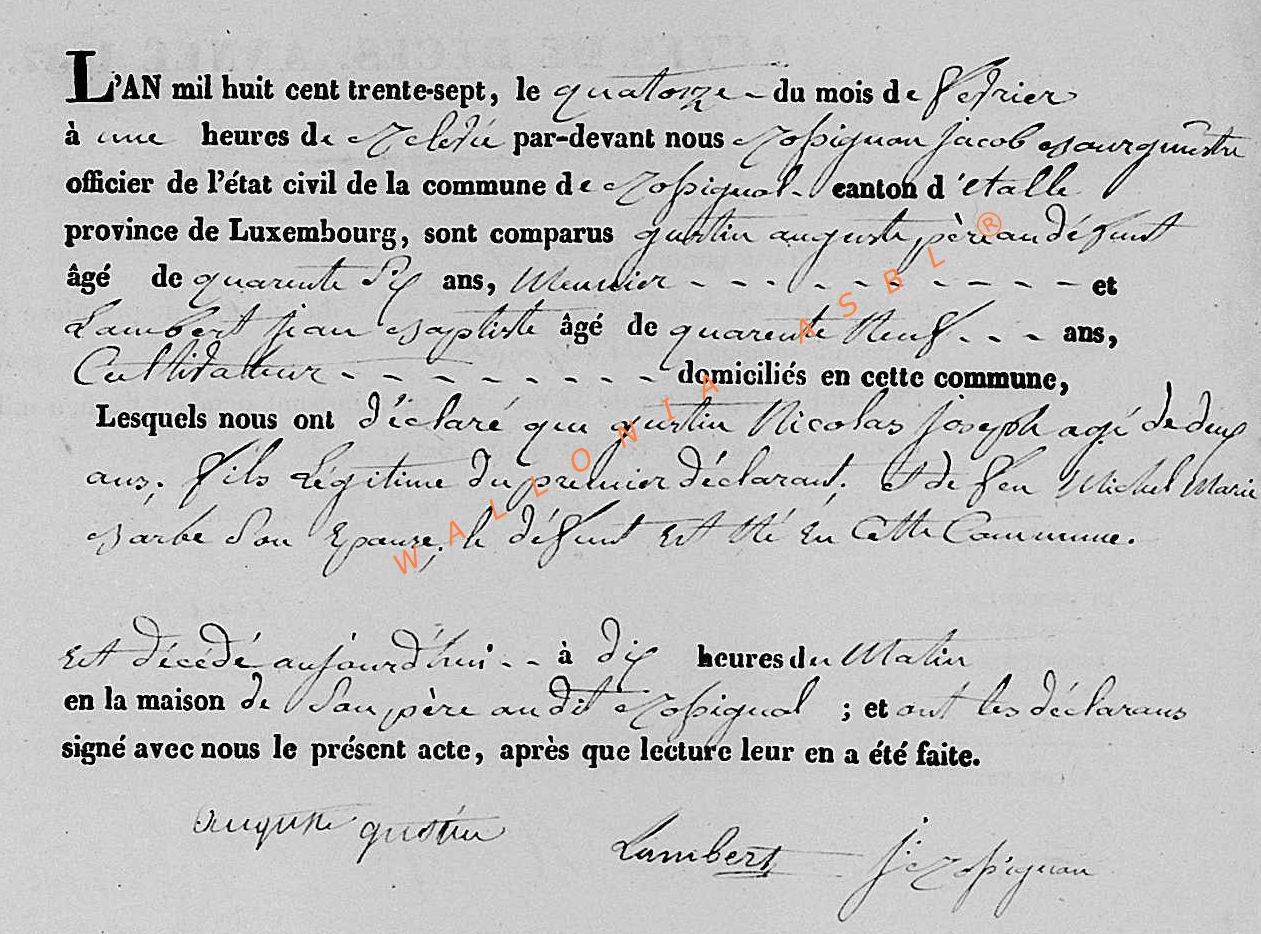 L'AN mil huit cent trente-sept, le quatorze du mois de fevrier
à une heures de Relevée par-devant nous Rossignon Jacob Bourgmestre
officier de l'état civil de la commune de Rossignol canton d'étalle
province de Luxembourg, sont comparus gustin auguste père au défunt
âgé de quarente Six ans, Meunier - - - - - - - - - - et
Lambert jean Baptiste âgé de quarente Neuf - - - ans,
Cultivateur - - - - - - - - - domiciliés en cette commune,
Lesquels nous ont déclaré que gustin Nicolas Joseph agé de deux
ans, fils Légitime du premier déclarant, et de feu Michel Marie
Barbe Son Epouse, le défunt Est Né En Cette Commune.
Est décédé aujourd'hui - - à dix heures du Matin
en la maison de Son père au dit Rossignol ; et ont les déclarans
signé avec nous le présent acte, après que lecture leur en a été faite.
auguste gustin
Lambert J: Rossignon
WALLONIA ASBL ®